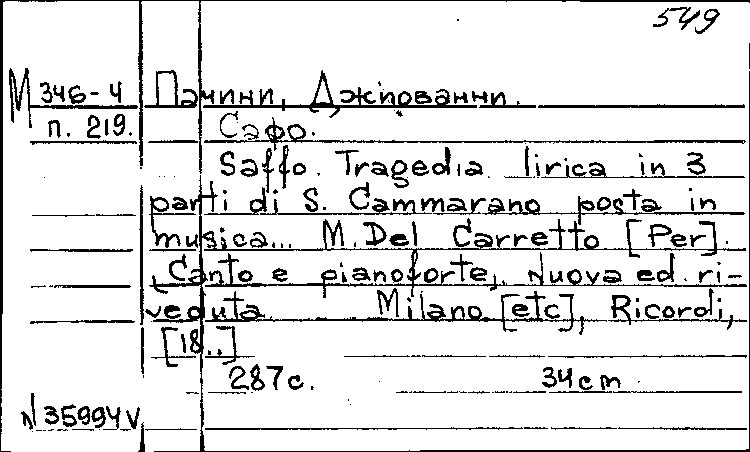 549
М 346-4 Пачини, Джованни.
п. 219. Сафо.
Saffo. Tragedia lirica in 3
parti di S. Cammarano posta in
musica... M. Del Carretto [Per]
Canto e pianoforte, Nuova ed ri-
veduta Milano [etc], Ricordi,
[18..]
287 с. 34 cm
N 35994 V